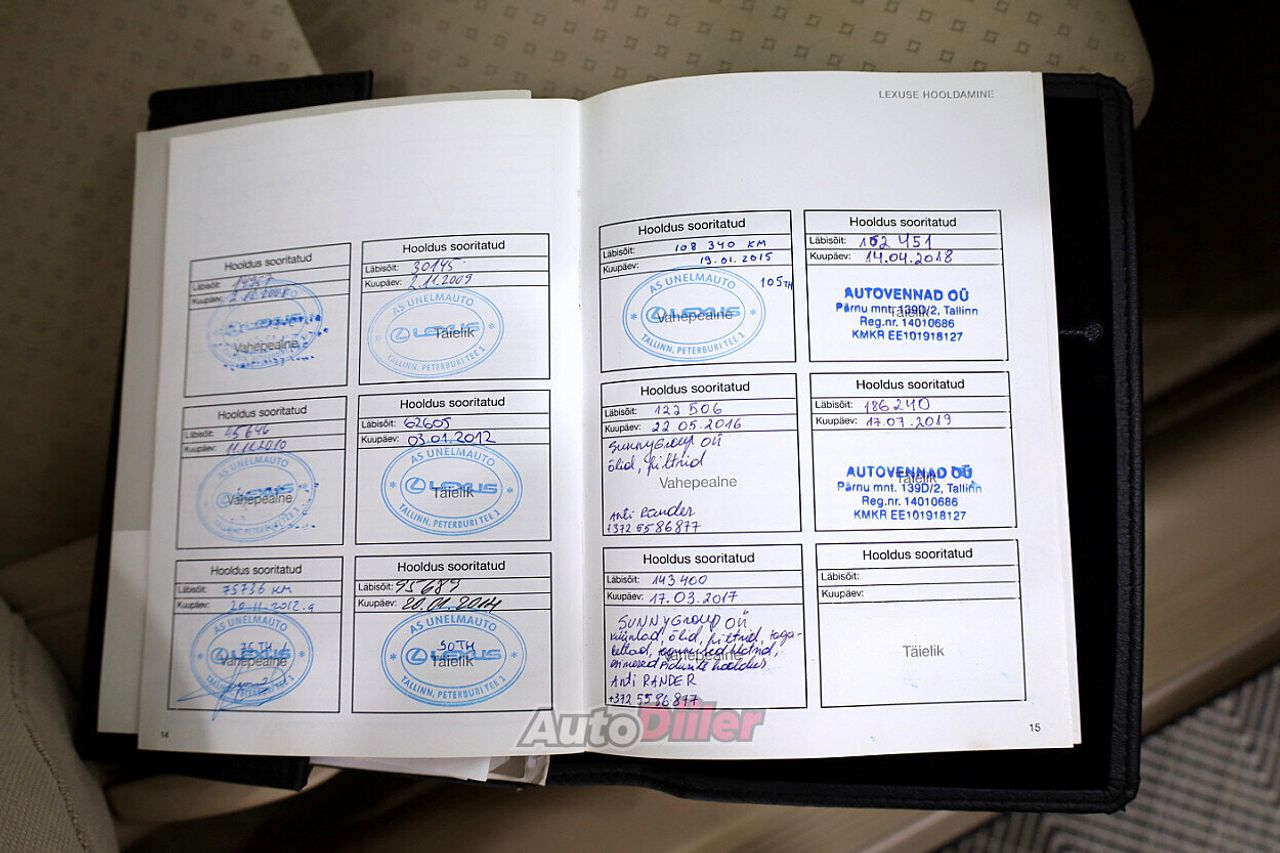 LEXUSE HOOLDAMINE
Hooldus sooritatud
Läbisõit:
Kuupäev: 2.12.2008
Vahepealne
Hooldus sooritatud
Läbisõit: 30145
Kuupäev: 2.11.2009
AS UNELMAUTO
LEXUS
Täielik
TALLINN, PETERBURI TEE 1
Hooldus sooritatud
Läbisõit: 45646
Kuupäev: 11.11.2010
AS UNELMAUTO
LEXUS
Vahepealne
TALLINN, PETERBURI TEE 1
Hooldus sooritatud
Läbisõit: 62605
Kuupäev: 03.01.2012
AS UNELMAUTO
LEXUS
Täielik
TALLINN, PETERBURI TEE 1
Hooldus sooritatud
Läbisõit: 75736 KM
Kuupäev: 20.11.2012.a
AS UNELMAUTO
75TH
LEXUS
Vahepealne
TALLINN, PETERBURI TEE 1
Hooldus sooritatud
Läbisõit: 95689
Kuupäev: 20.01.2014
AS UNELMAUTO
90TH
LEXUS
Täielik
TALLINN, PETERBURI TEE 1
14
Hooldus sooritatud
Läbisõit: 108 340 KM
Kuupäev: 19.01.2015
105TH
AS UNELMAUTO
LEXUS
Vahepealne
TALLINN, PETERBURI TEE 1
Hooldus sooritatud
Läbisõit: 162 451
Kuupäev: 14.04.2018
AUTOVENNAD OÜ
Pärnu mnt. 139D/2, Tallinn
Täielik
Reg.nr. 14010686
KMKR EE101918127
Hooldus sooritatud
Läbisõit: 122 506
Kuupäev: 22.05.2016
SunnyGroup OÜ
õlid, filtrid
Vahepealne
Anti Rander
+372 5586877
Hooldus sooritatud
Läbisõit: 186240
Kuupäev: 17.07.2019
AUTOVENNAD OÜ
Täielik
Pärnu mnt. 139D/2, Tallinn
Reg.nr. 14010686
KMKR EE101918127
Hooldus sooritatud
Läbisõit: 143400
Kuupäev: 17.03.2017
SUNNYGroup OÜ
küünlad, õlid, filtrid, taga-
Vahepealne
hooldus
Anti RANDER
+372 5586877
Hooldus sooritatud
Läbisõit:
Kuupäev:
Täielik
15
AutoDiller